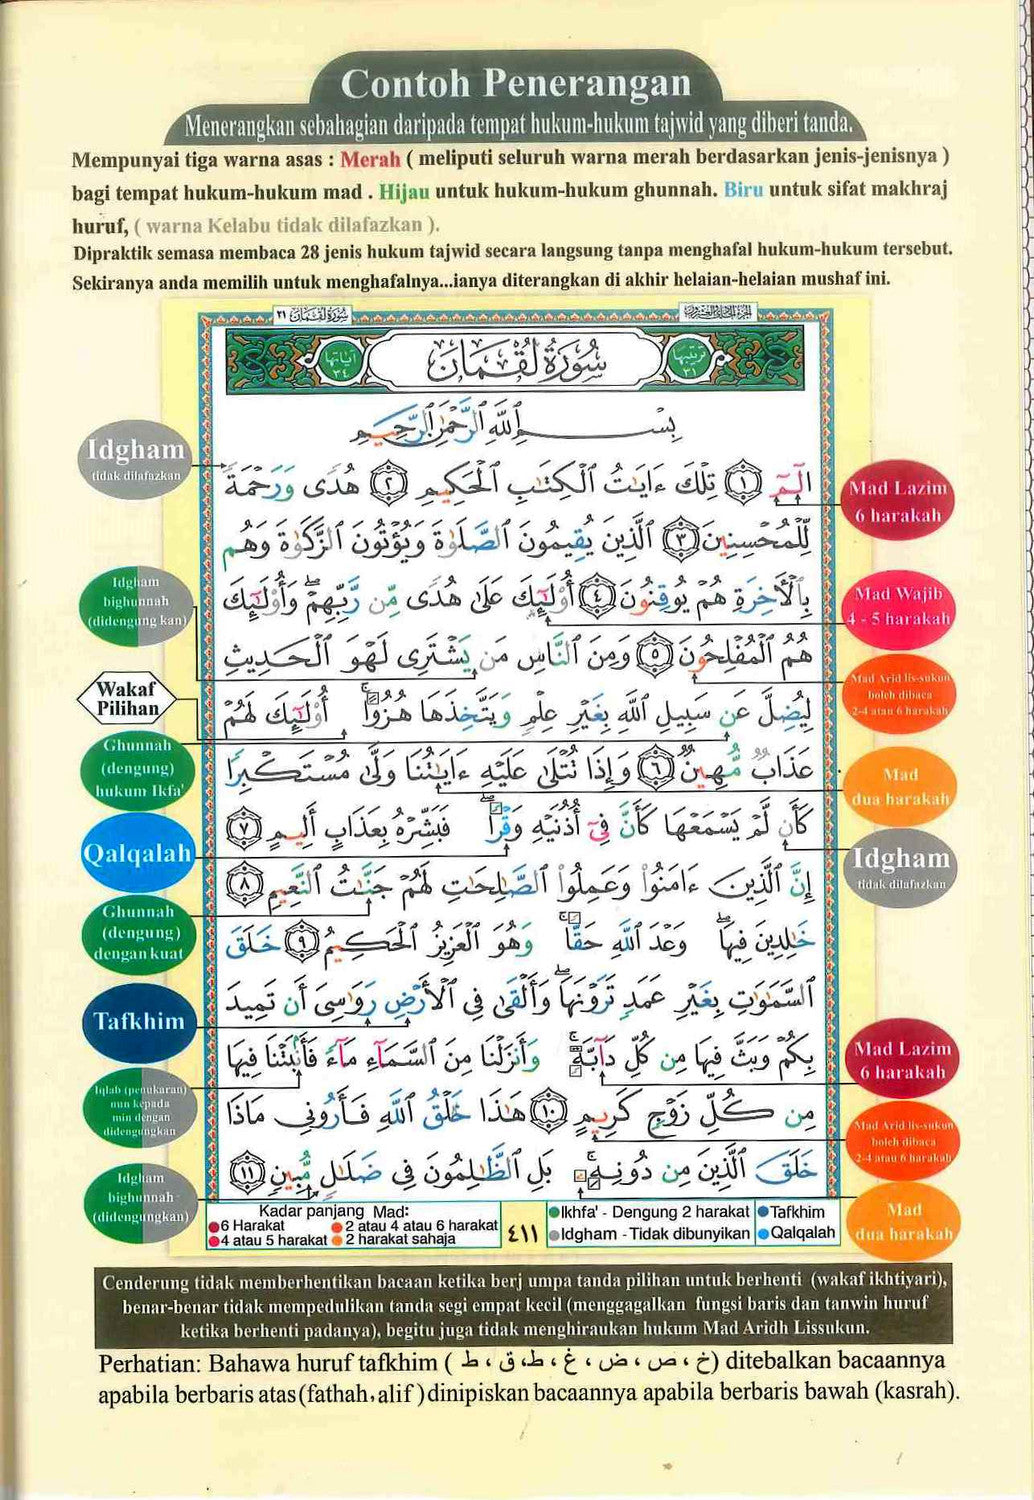 Contoh Penerangan
Menerangkan sebahagian daripada tempat hukum-hukum tajwid yang diberi tanda.
Mempunyai tiga warna asas : Merah ( meliputi seluruh warna merah berdasarkan jenis-jenisnya )
bagi tempat hukum-hukum mad . Hijau untuk hukum-hukum ghunnah. Biru untuk sifat makhraj
huruf, ( warna Kelabu tidak dilafazkan ).
Dipraktik semasa membaca 28 jenis hukum tajwid secara langsung tanpa menghafal hukum-hukum tersebut.
Sekiranya anda memilih untuk menghafalnya...ianya diterangkan di akhir helaian-helaian mushaf ini.
الجزء الحادي والعشرون
سورة لقمان ٣١
ترتيبها ٣١
سُورَةُ لُقْمَان
آياتها ٣٤
بِسْمِ ٱللَّهِ ٱلرَّحْمَٰنِ ٱلرَّحِيمِ
الٓمٓ ١ تِلْكَ ءَايَٰتُ ٱلْكِتَٰبِ ٱلْحَكِيمِ ٢ هُدًى وَرَحْمَةً
لِّلْمُحْسِنِينَ ٣ ٱلَّذِينَ يُقِيمُونَ ٱلصَّلَوٰةَ وَيُؤْتُونَ ٱلزَّكَوٰةَ وَهُم
بِٱلْأَخِرَةِ هُمْ يُوقِنُونَ ٤ أُوْلَٰٓئِكَ عَلَىٰ هُدًى مِّن رَّبِّهِمْ ۖ وَأُوْلَٰٓئِكَ
هُمُ ٱلْمُفْلِحُونَ ٥ وَمِنَ ٱلنَّاسِ مَن يَشْتَرِى لَهْوَ ٱلْحَدِيثِ
لِيُضِلَّ عَن سَبِيلِ ٱللَّهِ بِغَيْرِ عِلْمٍ وَيَتَّخِذَهَا هُزُوًا ۚ أُوْلَٰٓئِكَ لَهُمْ
عَذَابٌ مُّهِينٌ ٦ وَإِذَا تُتْلَىٰ عَلَيْهِ ءَايَٰتُنَا وَلَّىٰ مُسْتَكْبِرًا
كَأَن لَّمْ يَسْمَعْهَا كَأَنَّ فِىٓ أُذُنَيْهِ وَقْرًا ۖ فَبَشِّرْهُ بِعَذَابٍ أَلِيمٍ ٧
إِنَّ ٱلَّذِينَ ءَامَنُوا۟ وَعَمِلُوا۟ ٱلصَّٰلِحَٰتِ لَهُمْ جَنَّٰتُ ٱلنَّعِيمِ ٨
خَٰلِدِينَ فِيهَا ۖ وَعْدَ ٱللَّهِ حَقًّا ۚ وَهُوَ ٱلْعَزِيزُ ٱلْحَكِيمُ ٩ خَلَقَ
ٱلسَّمَٰوَٰتِ بِغَيْرِ عَمَدٍ تَرَوْنَهَا ۖ وَأَلْقَىٰ فِى ٱلْأَرْضِ رَوَٰسِىَ أَن تَمِيدَ
بِكُمْ وَبَثَّ فِيهَا مِن كُلِّ دَآبَّةٍ ۚ وَأَنزَلْنَا مِنَ ٱلسَّمَآءِ مَآءً فَأَنۢبَتْنَا فِيهَا
مِن كُلِّ زَوْجٍ كَرِيمٍ ١٠ هَٰذَا خَلْقُ ٱللَّهِ فَأَرُونِى مَاذَا
خَلَقَ ٱلَّذِينَ مِن دُونِهِۦ ۚ بَلِ ٱلظَّٰلِمُونَ فِى ضَلَٰلٍ مُّبِينٍ ١١
Idgham
tidak dilafazkan
Idgham
bighunnah
(didengung kan)
Wakaf
Pilihan
Ghunnah
(dengung)
hukum Ikfa'
Qalqalah
Ghunnah
(dengung)
dengan kuat
Tafkhim
Iqlab (penukaran)
nun kepada
mim dengan
didengungkan
Idgham
bighunnah
(didengungkan)
Mad Lazim
6 harakah
Mad Wajib
4 - 5 harakah
Mad Arid lis-sukun
boleh dibaca
2-4 atau 6 harakah
Mad
dua harakah
Idgham
tidak dilafazkan
Mad Lazim
6 harakah
Mad Arid lis-sukun
boleh dibaca
2-4 atau 6 harakah
Mad
dua harakah
Kadar panjang Mad:
6 Harakat
2 atau 4 atau 6 harakat
4 atau 5 harakat
2 harakat sahaja
٤١١
Ikhfa' - Dengung 2 harakat
Tafkhim
Idgham - Tidak dibunyikan
Qalqalah
Cenderung tidak memberhentikan bacaan ketika berj umpa tanda pilihan untuk berhenti (wakaf ikhtiyari),
benar-benar tidak mempedulikan tanda segi empat kecil (menggagalkan fungsi baris dan tanwin huruf
ketika berhenti padanya), begitu juga tidak menghiraukan hukum Mad Aridh Lissukun.
Perhatian: Bahawa huruf tafkhim ( خ ، ص ، ض ، غ ، ط، ق ، ظ ) ditebalkan bacaannya
apabila berbaris atas (fathah, alif ) dinipiskan bacaannya apabila berbaris bawah (kasrah).